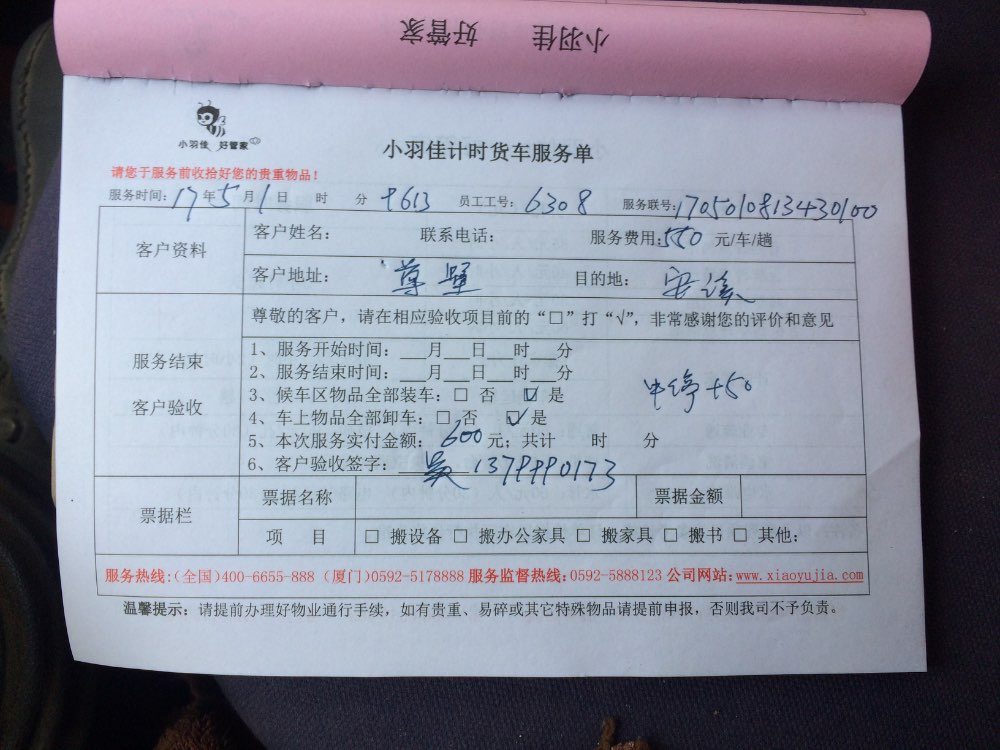 小羽佳 好管家
小羽佳 好管家
小羽佳计时货车服务单
请您于服务前收拾好您的贵重物品！
服务时间：17年5月1日 时 分 9613 员工工号：6308 服务联号：1705010813430100
客户资料
客户姓名： 联系电话： 服务费用：550 元/车/趟
客户地址： 尊墅 目的地： 安溪
服务结束
客户验收
尊敬的客户，请在相应验收项目前的“□”打“√”，非常感谢您的评价和意见
1、服务开始时间：___月___日___时___分
2、服务结束时间：___月___日___时___分
3、候车区物品全部装车：□ 否 ☑ 是
中停+50
4、车上物品全部卸车：□ 否 ☑ 是
5、本次服务实付金额：600元；共计 时 分
6、客户验收签字：吴 1379990173
票据栏
票据名称 票据金额
项 目 □ 搬设备 □ 搬办公家具 □ 搬家具 □ 搬书 □ 其他：
服务热线：(全国)400-6655-888 (厦门)0592-5178888 服务监督热线：0592-5888123 公司网站：www.xiaoyujia.com
温馨提示：请提前办理好物业通行手续，如有贵重、易碎或其它特殊物品请提前申报，否则我司不予负责。